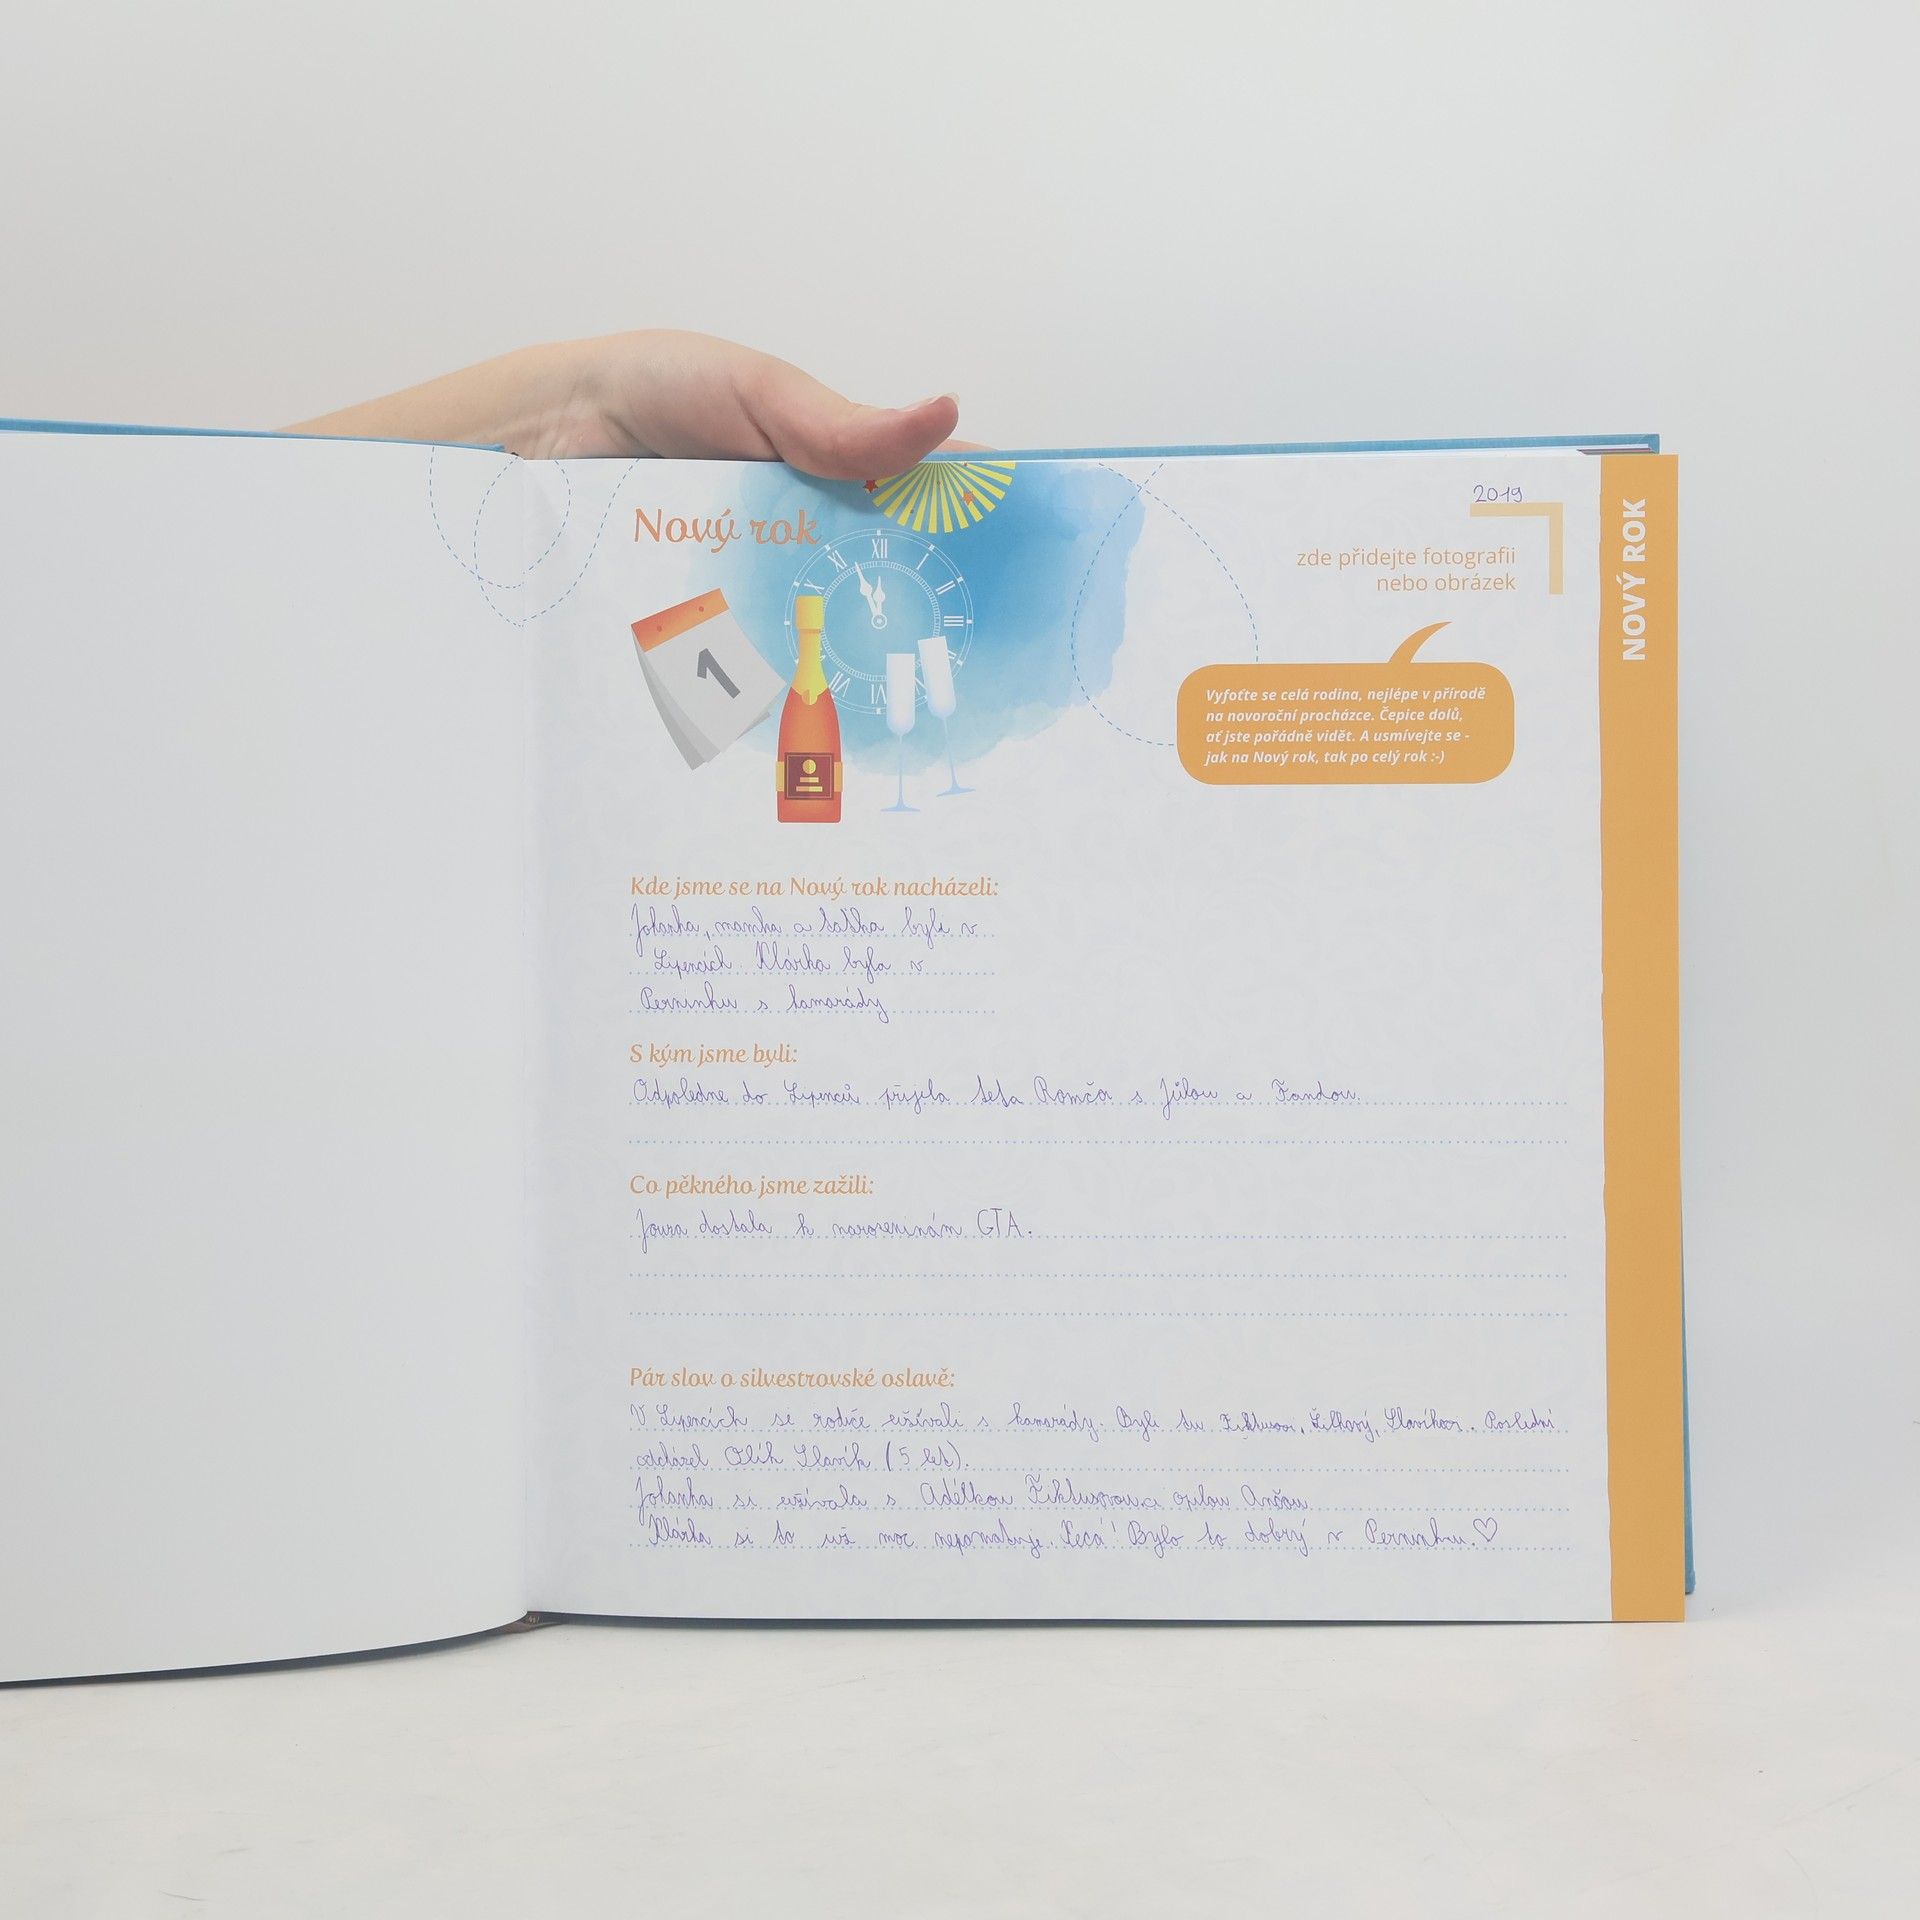 2019
Nový rok
zde přidejte fotografii
nebo obrázek
NOVÝ ROK
XII
XI
X
III
VII
VI
1
Vyfoťte se celá rodina, nejlépe v přírodě
na novoroční procházce. Čepice dolů,
ať jste pořádně vidět. A usmívejte se -
jak na Nový rok, tak po celý rok :-)
Kde jsme se na Nový rok nacházeli:
Johanka, mamka a taťka byli v
Lipencích. Klárka byla v
Perninku s kamarády
S kým jsme byli:
Odpoledne do Lipenců přijela teta Romča s Jůlou a Fandou.
Co pěkného jsme zažili:
dostala k narozeninám GTA.
Pár slov o silvestrovské oslavě:
V Lipencích se rodiče užívali s kamarády. Byli tu Poslední
odcházel Olík Slavík (5 let).
Johanka si užívala s Adélkou opilou Ančou.
Klárka si to už moc nepamatuje. Kecá! Bylo to dobrý v Perninku. ♡